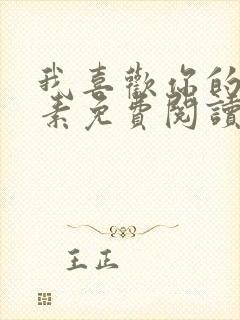 我喜歡你的
素免費閱讀
王正